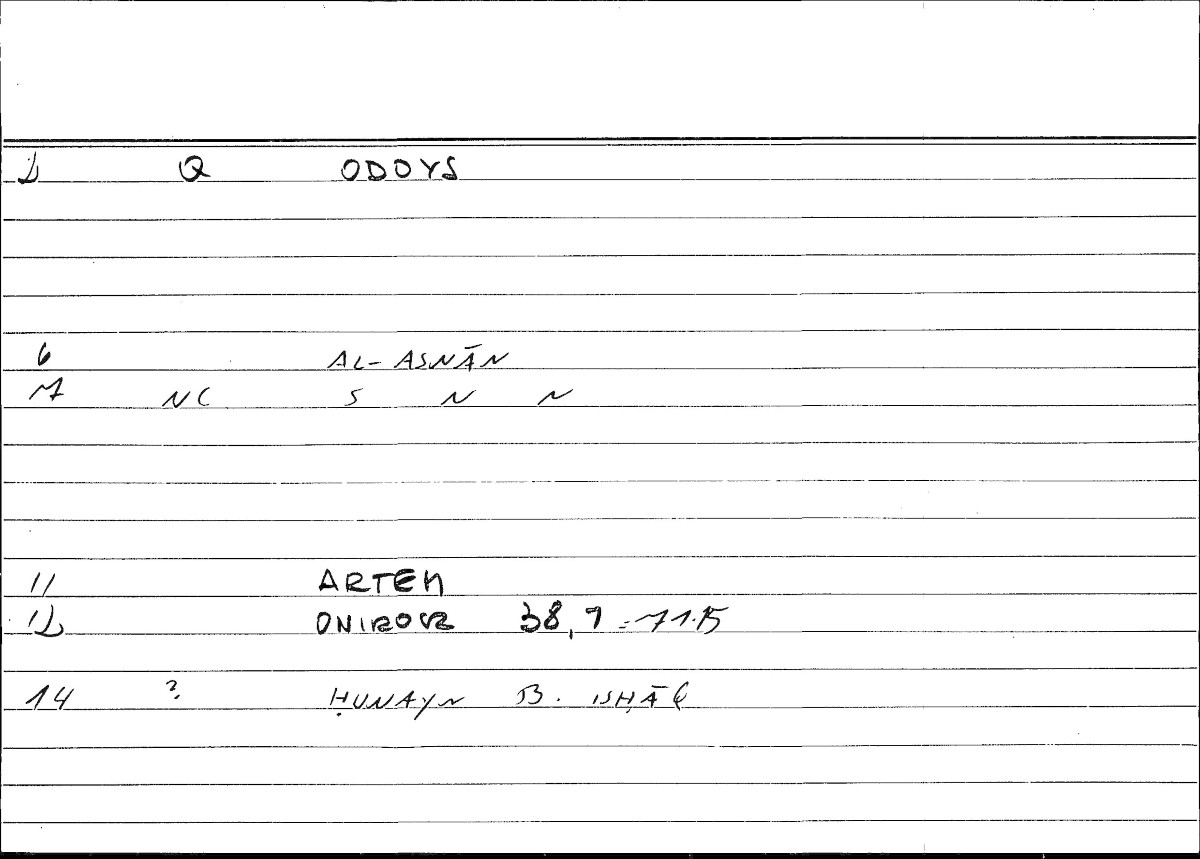 2 Q ODOYS
6 AL-ASNĀN
7 NC S N N
11 ARTEM
12 ONIROCR 38,9 = 71.15
14 ? ḤUNAYN B. ISḤĀQ